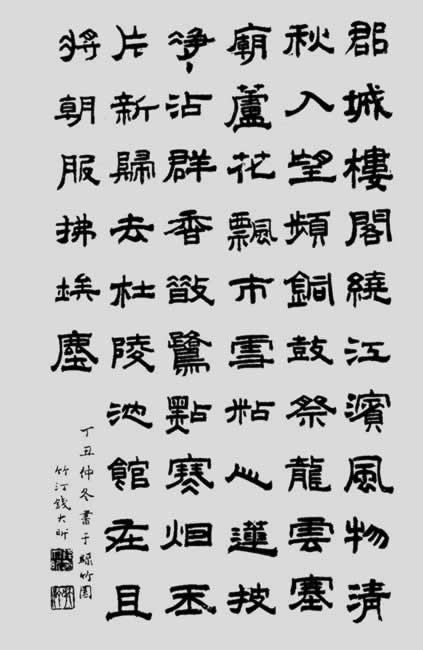 郡城樓閣繞江濱風物清
秋入望頻銅鼓祭龍雲塞
廟蘆花飄市雪粘人蓮披
淨沾群香散鷺點寒烟玉
片新歸去杜陵池館在且
將朝服拂埃塵
丁丑仲冬書于綠竹園
竹汀錢大昕